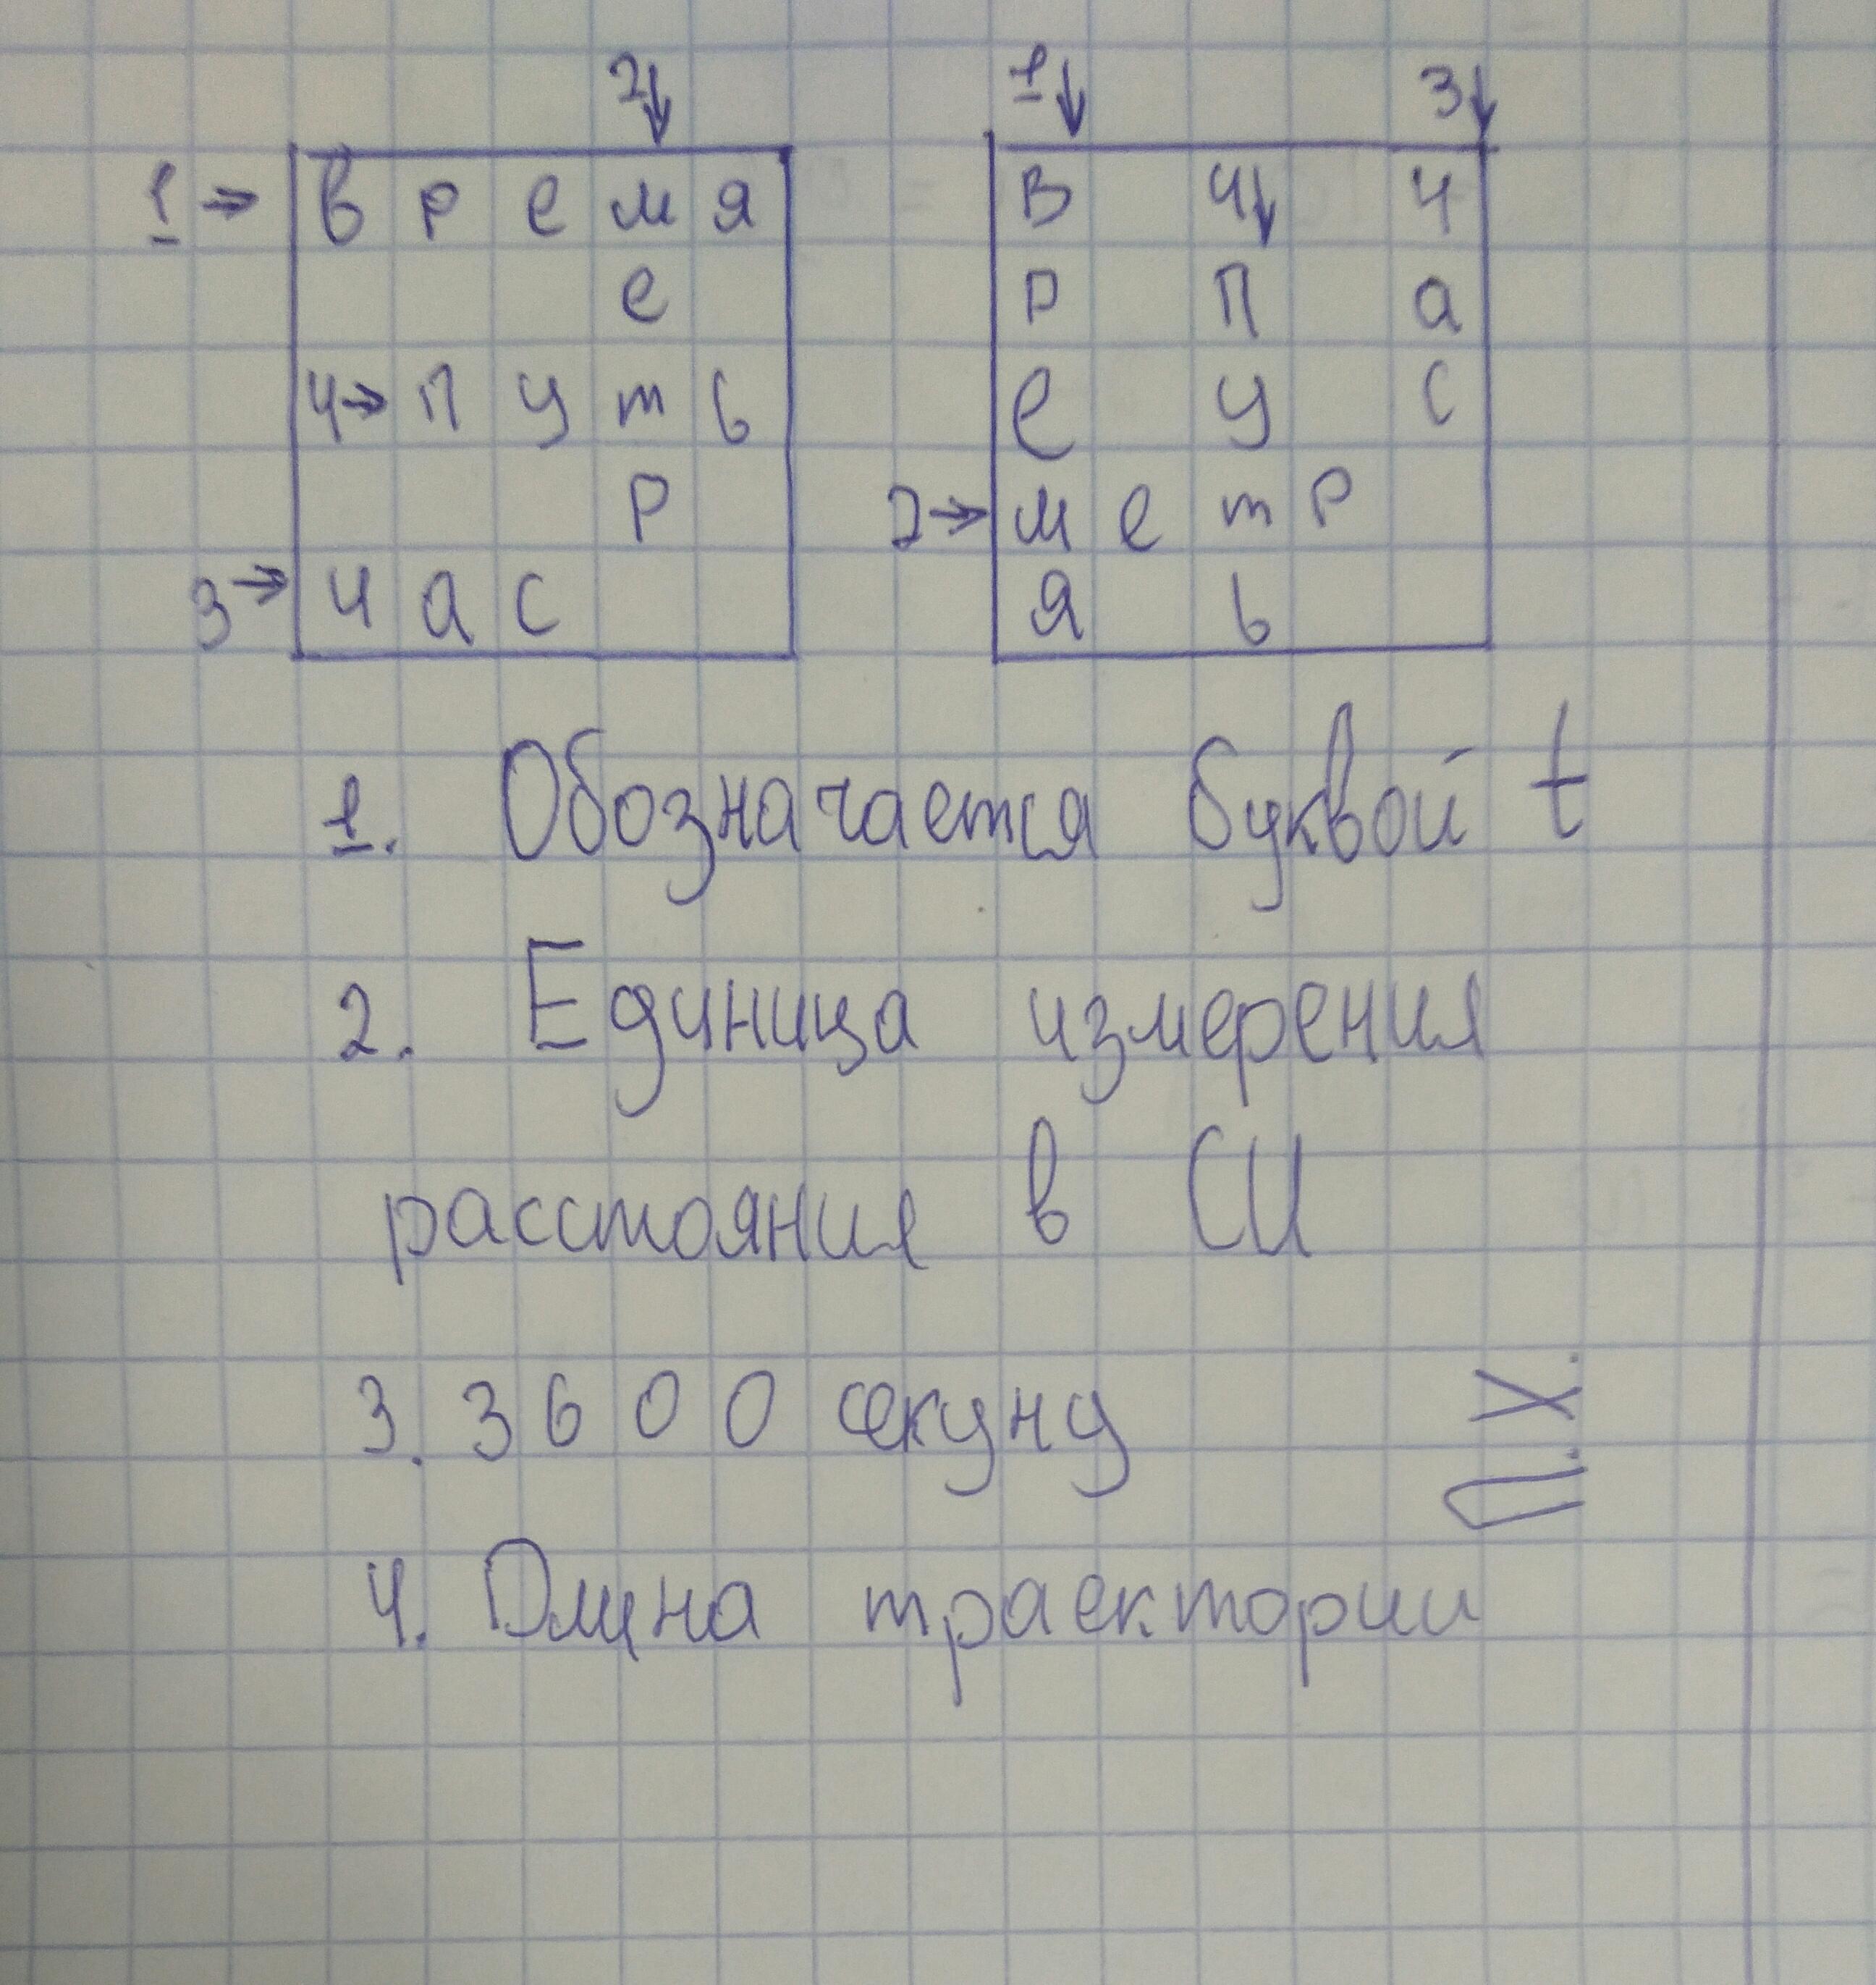 2↓
1→ в р е м я
е
4→ п у т ь
р
3→ ч а с
1↓ 3↓
В 4↓ ч
р п а
е у с
2→ м е т р
я ь
1. Обозначается буквой t
2. Единица измерения
расстояния в СИ
3. 3600 секунд
4. Длина траектории
П.Х.